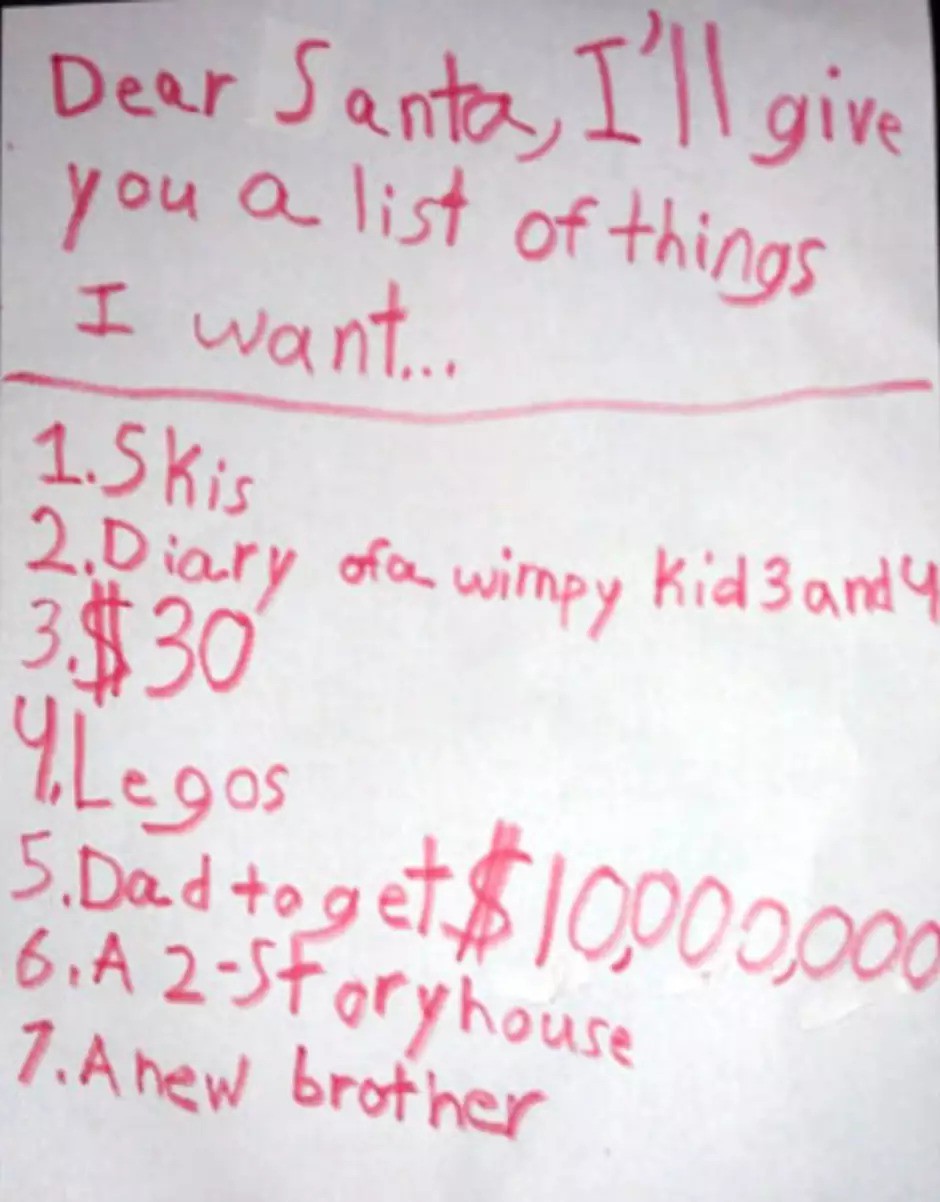 Dear Santa, I'll give
you a list of things
I want...
1. Skis
2. Diary of a wimpy Kid 3 and 4
3. $30
4. Legos
5. Dad to get $10,000,000
6. A 2-Story house
7. A new brother